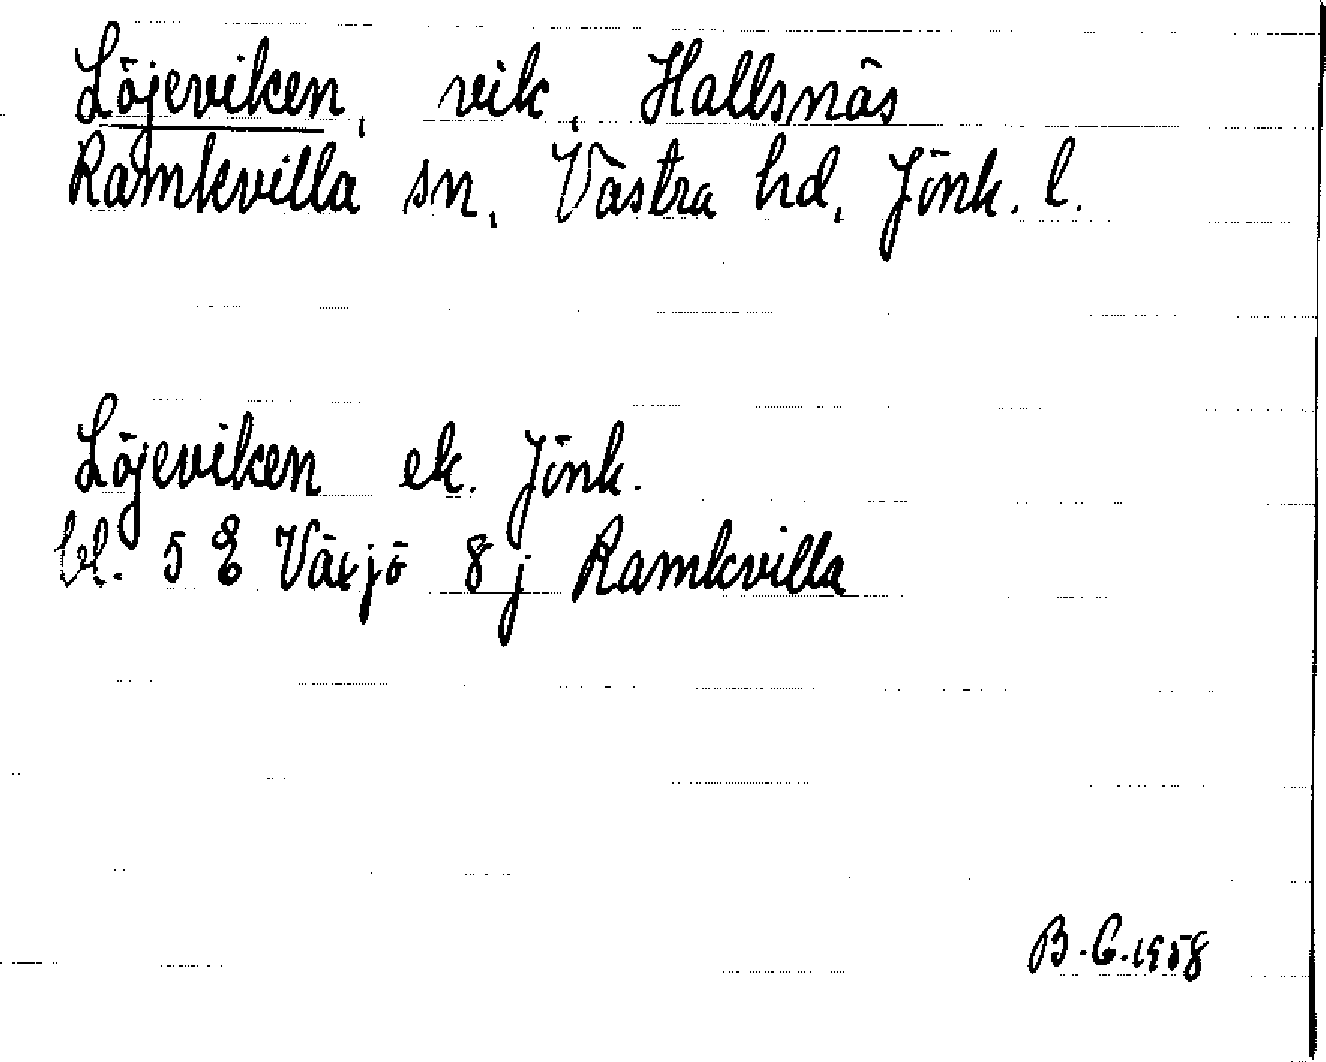 Löjeviken, vik, Hallsnäs
Ramkvilla sn, Västra hd, Jönk. l.
Löjeviken ek. Jönk.
bl. 5 E Växjö 8 j Ramkvilla
B.C. 1958